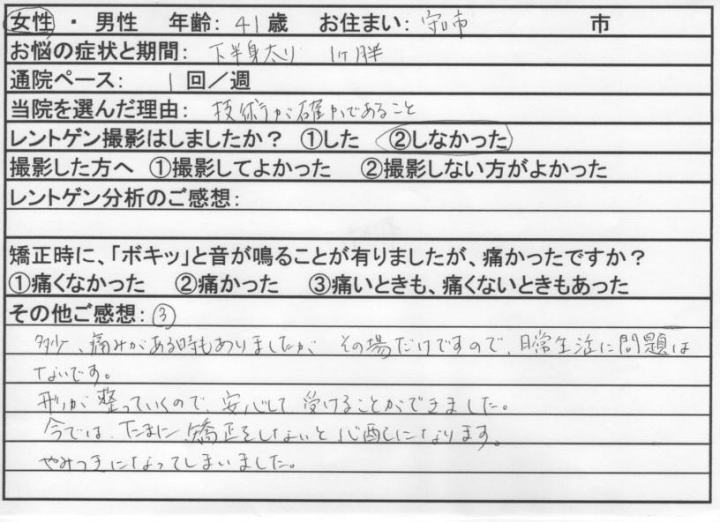 女性 ・ 男性 年齢: 41歳 お住まい: 守口市 市
お悩の症状と期間: 下半身太り 1ヶ月半
通院ペース: 1回/週
当院を選んだ理由: 技術力が確かであること
レントゲン撮影はしましたか? ①した ②しなかった
撮影した方へ ①撮影してよかった ②撮影しない方がよかった
レントゲン分析のご感想:
矯正時に、「ボキッ」と音が鳴ることが有りましたが、痛かったですか?
①痛くなかった ②痛かった ③痛いときも、痛くないときもあった
その他ご感想: ③
多少、痛みがある時もありましたが その場だけですので、日常生活に問題は
ないです。
形が整っていくので、安心して受けることができました。
今では、たまに矯正をしないと心配になります。
やみつきになってしまいました。